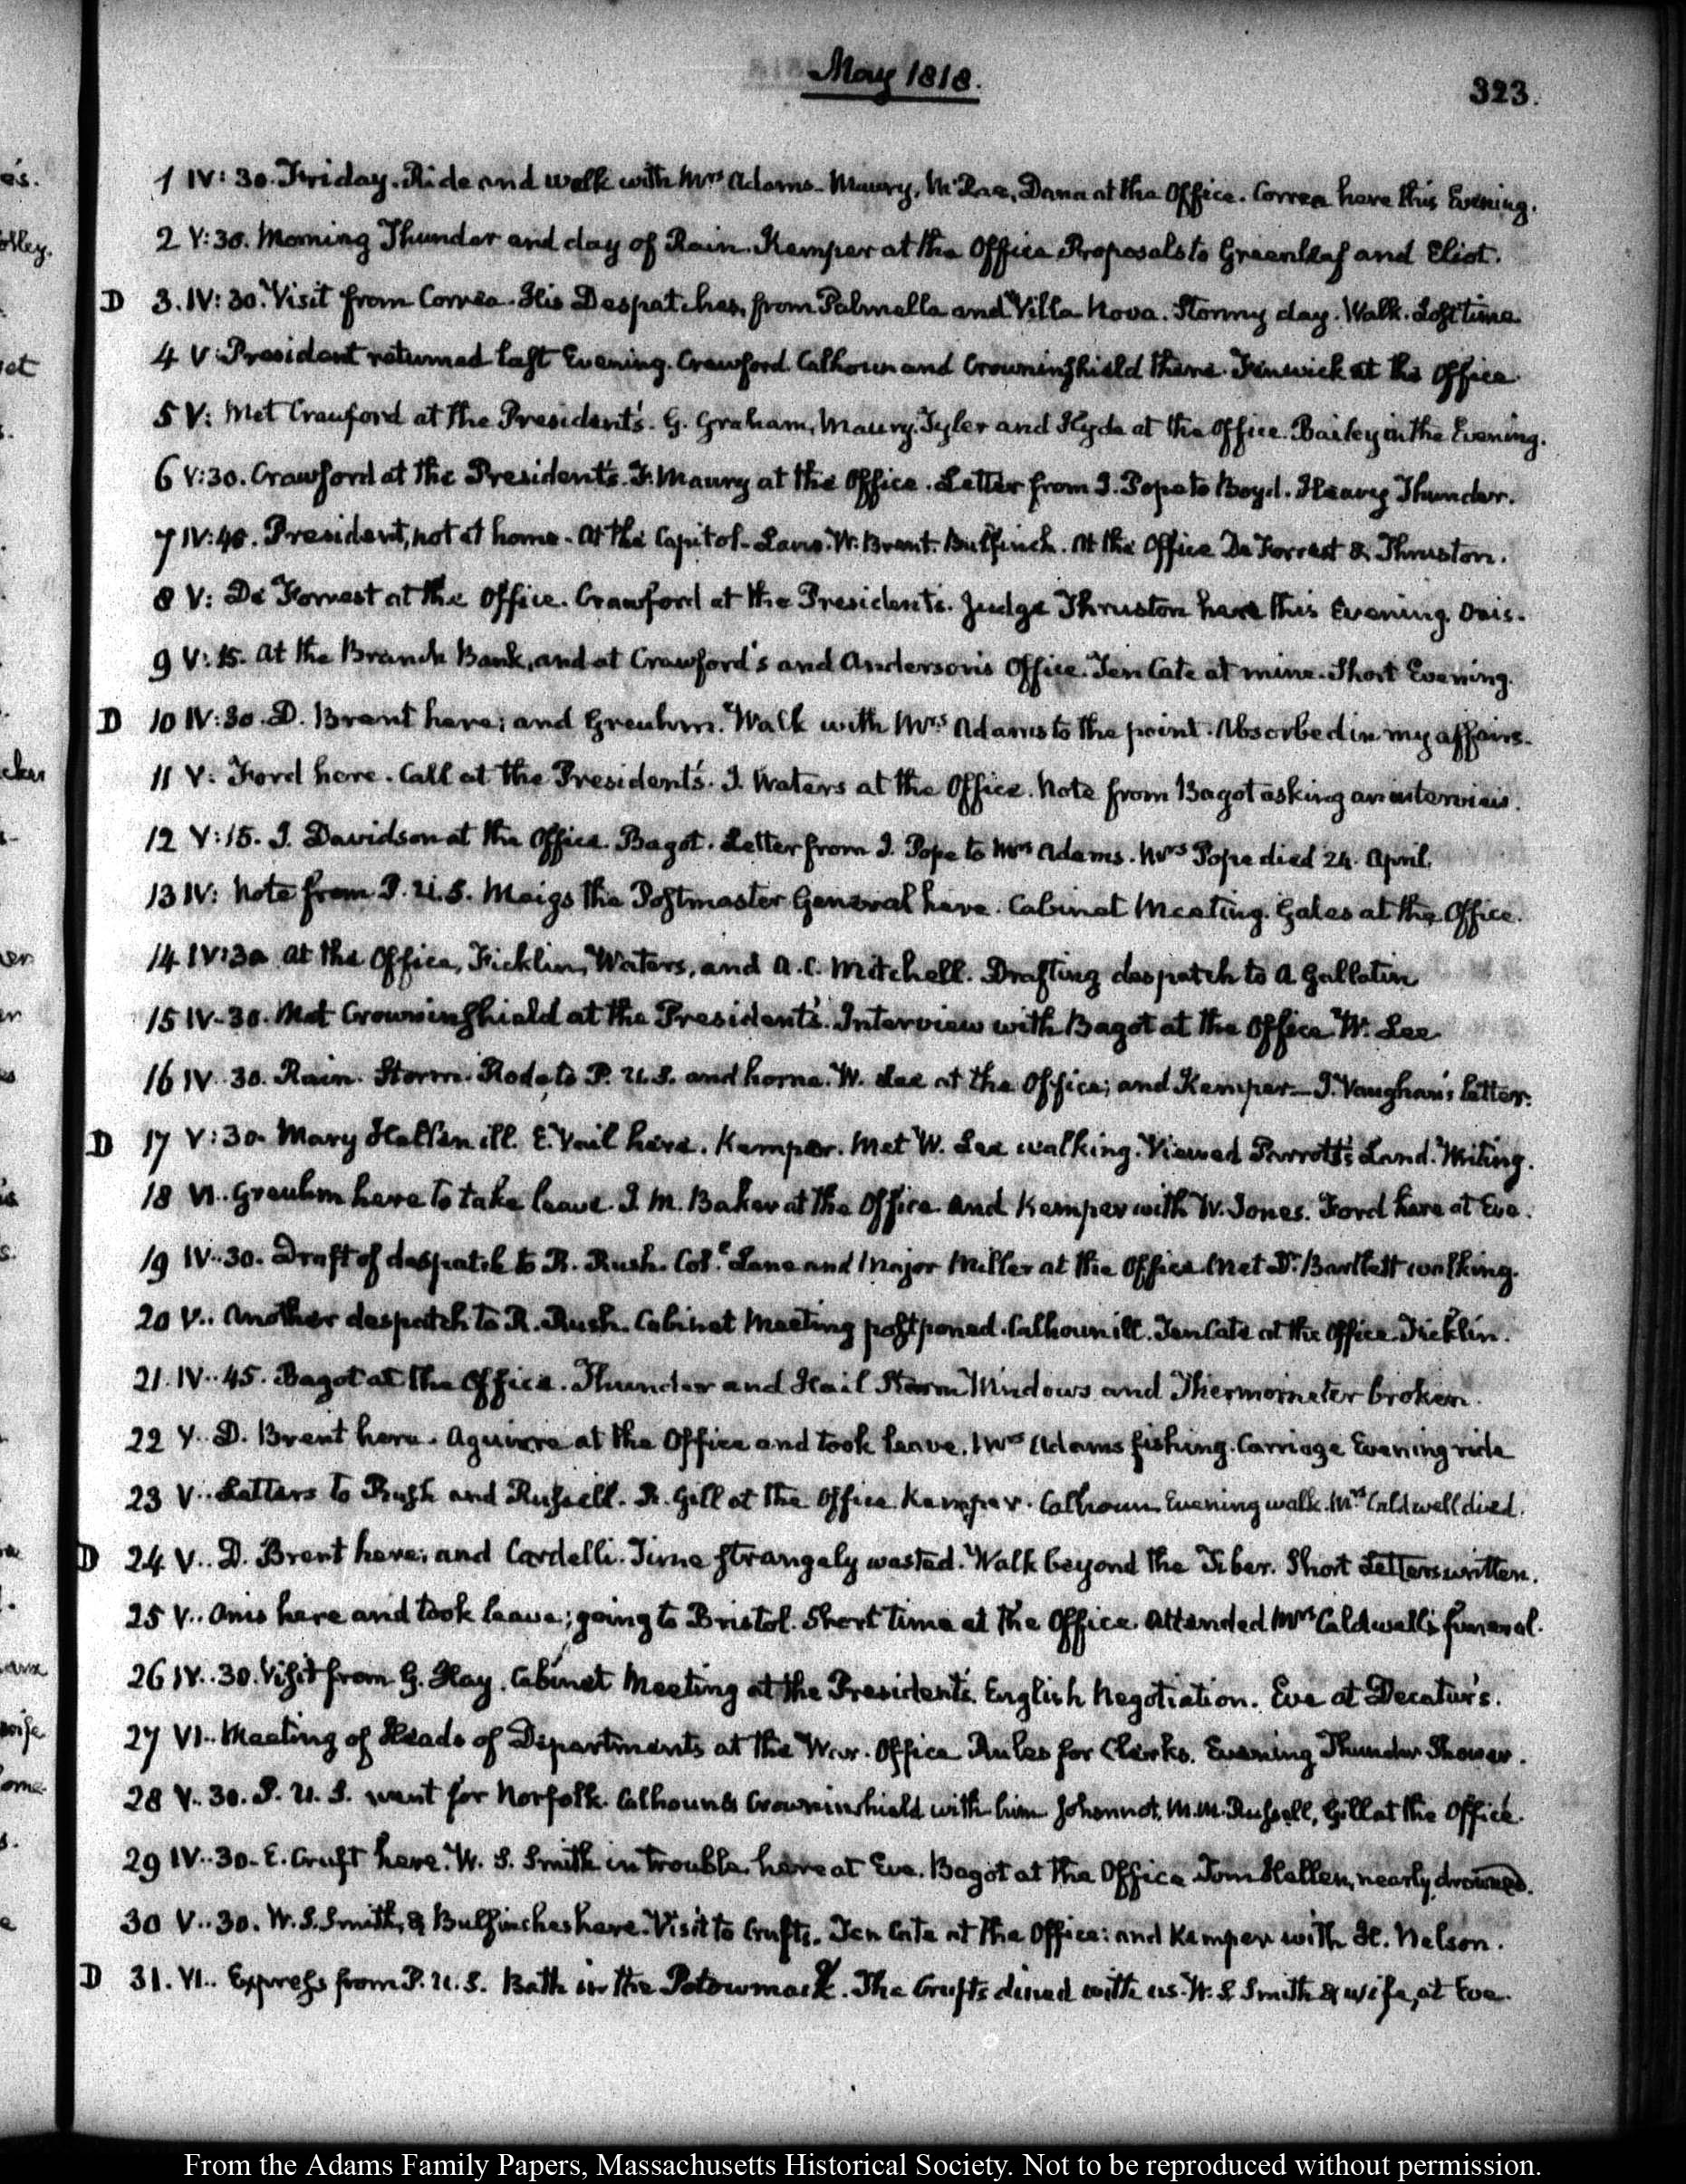 May 1818.
323.
1 IV: 30. Friday. Ride and walk with Mrs Adams. Maury, McRae, Dana at the Office. Correa here this Evening.
2 V: 30. Morning Thunder and day of Rain. Kemper at the Office Proposals to Greenleaf and Eliot.
D 3. IV: 30. Visit from Correa. His Despatches, from Palmella and Villa Nova. Stormy day. Walk. Lost time
4 V: President returned last Evening. Crawford. Calhoun and Crowninshield there. Fenwick at the Office
5 V: Met Crawford at the President's. G. Graham, Maury. Tyler and Hyde at the Office. Bailey in the Evening.
6 V:30. Crawford at the President's. F. Maury at the Office. Letter from J. Pope to Boyd. Heavy Thunder.
7 IV:40. President, not at home. At the Capitol. W. Brent. Bulfinch. At the Office De Forrest & Thruston.
8 V: De Forrest at the Office. Crawford at the President's. Judge Thruston here this Evening. Onis.
9 V: 15. At the Branch Bank, and at Crawford's and Anderson's Office. Ten Cate at mine. Short Evening.
D 10 IV:30. D. Brent here; and Greuhm. Walk with Mrs Adams to the point. Absorbed in my affairs.
11 V: Ford here. Call at the President's. J. Waters at the Office. Note from Bagot asking an interview.
12 V:15. J. Davidson at the Office. Bagot. Letter from J. Pope to Mrs Adams. Mrs Pope died 24. April.
13 IV: Note from P. U.S. Meigs the Postmaster General here. Cabinet Meeting. Gales at the Office.
14 IV:30 At the Office, Ficklin, Waters, and A. C. Mitchell. Drafting despatch to A Gallatin
15 IV-30. Met Crowninshield at the President's. Interview with Bagot at the Office W. Lee
16 IV. 30. Rain. Storm. Rode to P. U.S. and home. W. Lee at the Office; and Kemper—J. Vaughan's letter.
D 17 V:30. Mary Hellen ill. E. Vail here. Kemper. Met W. Lee walking. Viewed Parrott's Land. Writing.
18 VI.. Greuhm here to take leave. J. M. Baker at the Office and Kemper with W. Jones. Ford here at Eve.
19 IV..30. Draft of despatch to R. Rush. Col. Lane and Major Miller at the Office. Met Dr. Bartlett walking.
20 V.. Another despatch to R. Rush. Cabinet Meeting postponed. Calhoun ill. Ten Cate at the Office. Ficklin.
21. IV..45. Bagot at the Office. Thunder and Hail Storm Windows and Thermometer broken.
22 V.. D. Brent here. Aguirre at the Office and took leave. Mrs Adams fishing. Carriage Evening ride
23 V.. Letters to Rush and Russell. R. Gill at the Office Kemper. Calhoun Evening walk. Mrs Caldwell died.
D 24 V.. D. Brent here; and Cardelli. Time strangely wasted. Walk beyond the Tiber. Short Letters written.
25 V.. Onis here and took leave; going to Bristol. Short time at the Office. Attended Mrs Caldwell's funeral.
26 IV..30. Visit from G. Hay. Cabinet Meeting at the President's. English Negotiation. Eve at Decatur's.
27 VI.. Meeting of Heads of Departments at the War. Office Rules for Clerks. Evening Thunder Shower.
28 V. 30. P. U. S. went for Norfolk. Calhoun & Crowninshield with him Johonnot. M. M. Russell, Gill at the Office.
29 IV..30. E. Cruft here. W. S. Smith in trouble here at Eve. Bagot at the Office Tom Hellen, nearly drowned.
30 V..30. W. S. Smith, & Bulfinches here. Visit to Crufts. Ten Cate at the Office: and Kemper with H. Nelson.
D 31. VI.. Express from P. U. S. Bath in the Potowmack. The Crufts dined with us. W. S. Smith & wife, at Eve.
From the Adams Family Papers, Massachusetts Historical Society. Not to be reproduced without permission.